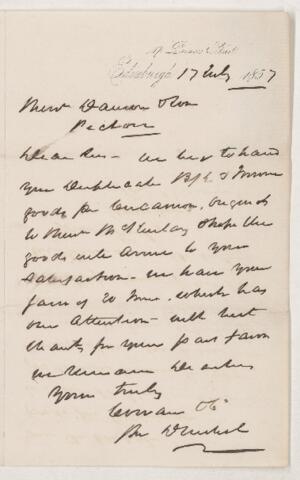 17 Princes Street
Edinburgh 17 July 1857
Messrs Dawson & Son
Pecton
Dear Sirs - we beg to hand
you Duplicate B/L &
goods per
to Messrs hope the
goods will arrive to your
satisfaction - we have your
favor of 20 June, which has
our attention - with best
thanks for your past favors
we remain Dear Sirs
Yours truly
Cowan & Co
per